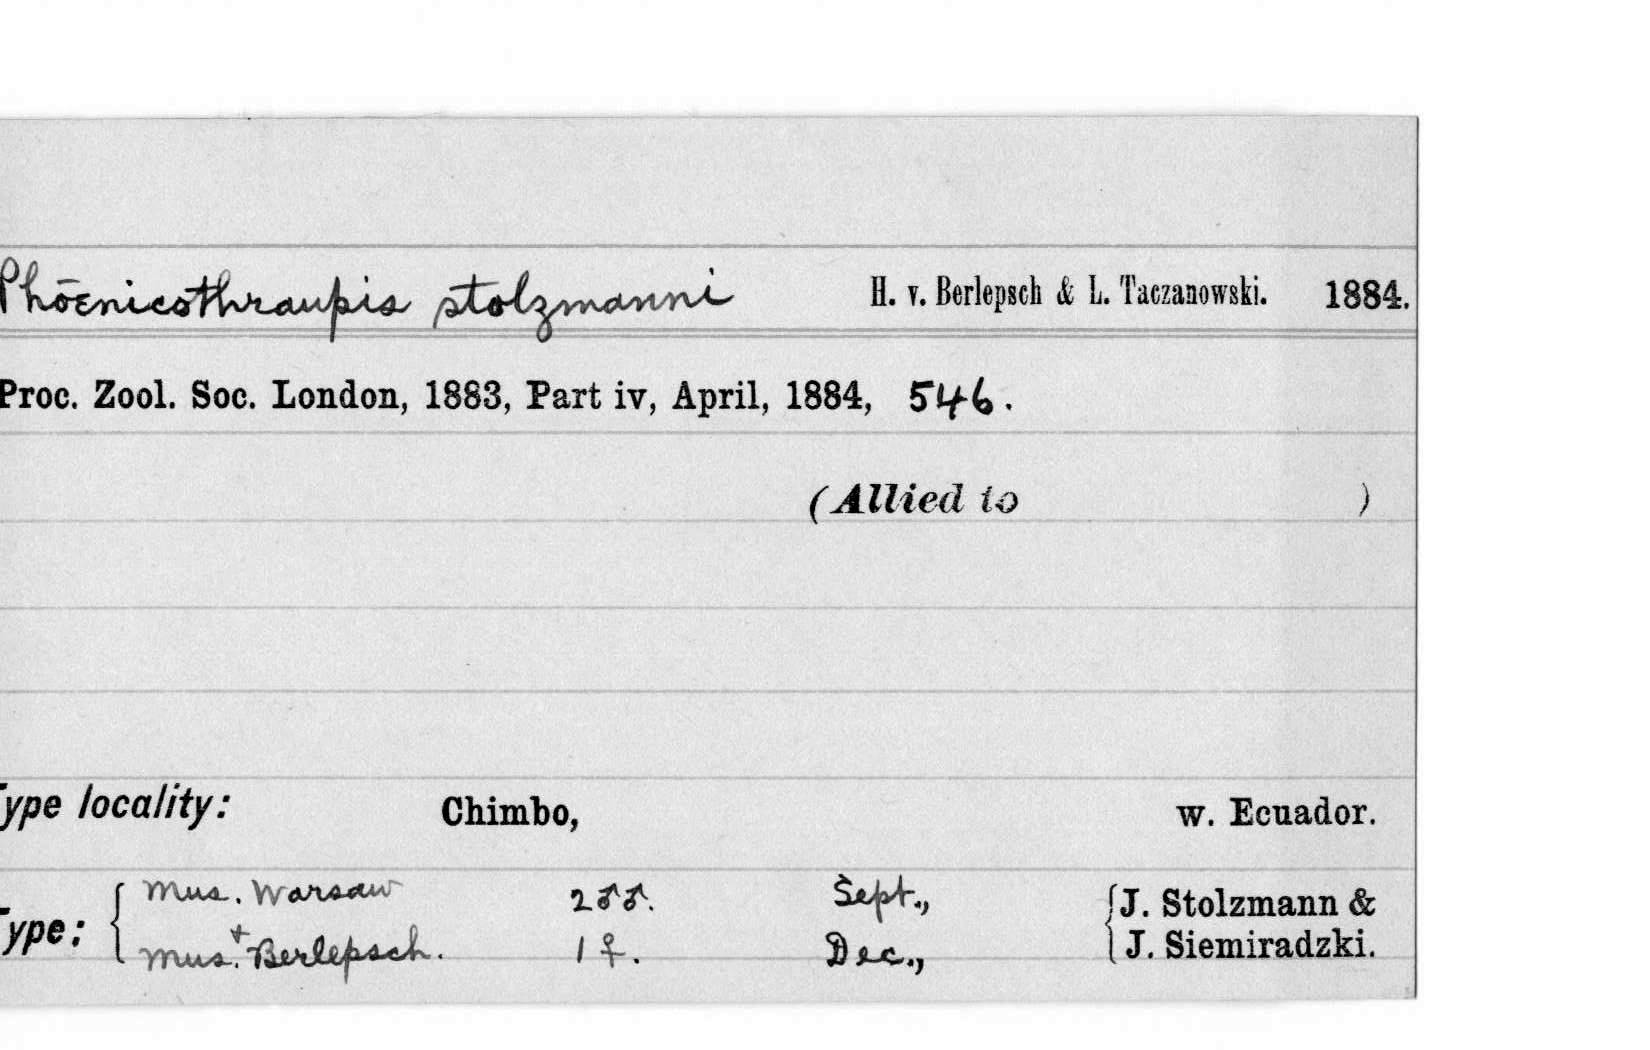 Phōenicothraupis stolzmanni H. v. Berlepsch & L. Taczanowski. 1884.
Proc. Zool. Soc. London, 1883, Part iv, April, 1884, 546.
(Allied to )
Type locality: Chimbo, w. Ecuador.
Type: { Mus. Warsaw 2 ♂♂. Sept., { J. Stolzmann &
+ Mus. Berlepsch. 1 ♀. Dec., J. Siemiradzki.